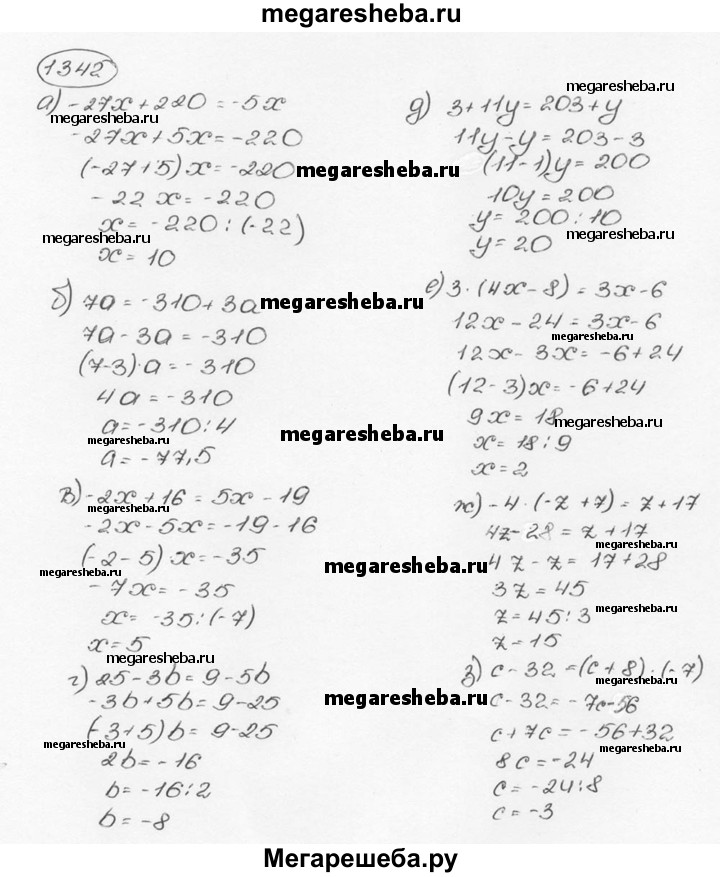 megaresheba.ru
1342
а) -27x + 220 = -5x
megaresheba.ru
-27x + 5x = -220
(-27+5)x = -220
megaresheba.ru
-22 x = -220
x = -220 : (-22)
megaresheba.ru
x = 10
б) 7a = -310 + 3a
megaresheba.ru
7a - 3a = -310
(7-3)·a = -310
4a = -310
a = -310 : 4
megaresheba.ru
a = -77,5
megaresheba.ru
в) -2x + 16 = 5x - 19
megaresheba.ru
-2x - 5x = -19 - 16
(-2-5)·x = -35
megaresheba.ru
megaresheba.ru
-7x = -35
x = -35 : (-7)
x = 5
megaresheba.ru
г) 25 - 3b = 9 - 5b
-3b + 5b = 9 - 25
megaresheba.ru
(-3+5)b = 9 - 25
megaresheba.ru
2b = -16
b = -16 : 2
b = -8
megaresheba.ru
д) 3 + 11y = 203 + y
megaresheba.ru
11y - y = 203 - 3
(11-1)y = 200
10y = 200
y = 200 : 10
megaresheba.ru
y = 20
е) 3·(4x - 8) = 3x - 6
12x - 24 = 3x - 6
12x - 3x = -6 + 24
(12-3)x = -6 + 24
9x = 18
megaresheba.ru
x = 18 : 9
x = 2
ж) -4·(-z + 7) = z + 17
megaresheba.ru
4z - 28 = z + 17
4z - z = 17 + 28
3z = 45
z = 45 : 3
megaresheba.ru
z = 15
з) c - 32 = (c + 8)·(-7)
megaresheba.ru
c - 32 = -7c - 56
c + 7c = -56 + 32
megaresheba.ru
8c = -24
c = -24 : 8
megaresheba.ru
c = -3
Мегарешеба.ру